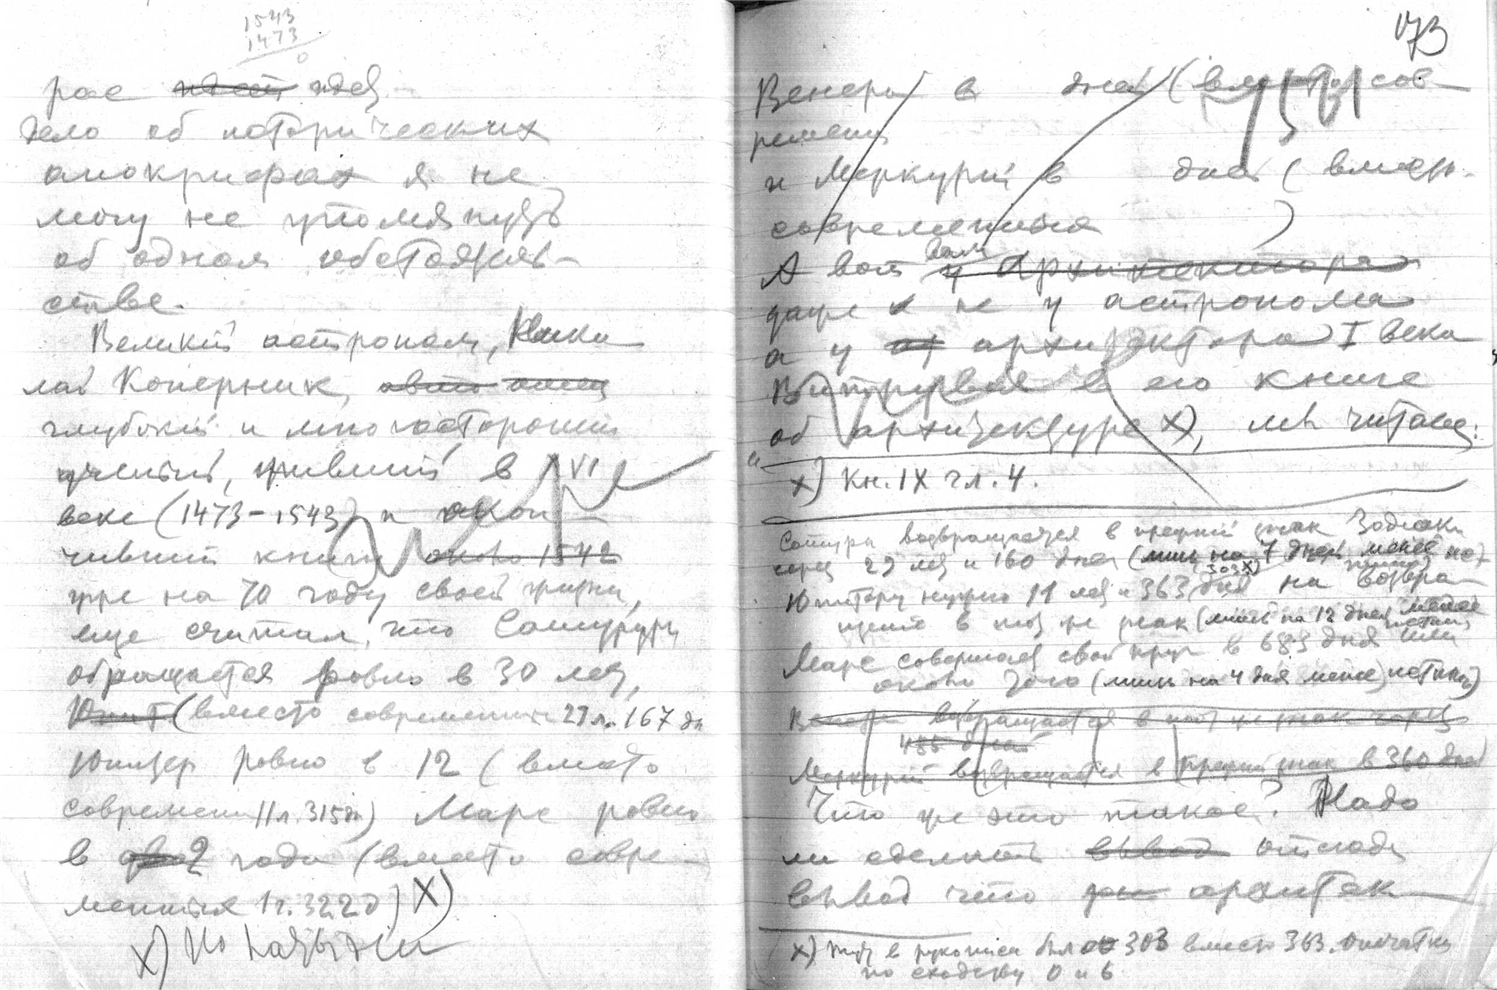 1543
1473
0
рас идет идет
дело об исторических
апокрифах я не
могу не упомянуть
об одном обстоятель-
стве.
Великий астроном, Нико
лай Коперник,
глубокий и многосторонний
ученый, живший в XVI
веке (1473-1543) и окон-
чивший книгу около 1542
уже на 70 году своей жизни,
еще считал, что Сатурн
обращается ровно в 30 лет,
Юпит (вместо современных 29 л. 167 дн
Юпитер ровно в 12 (вместо
современ 11 л. 315 дн) Марс ровно
в 2 года (вместо совре-
менных 1 г. 322 д) X)
x)
173
Венера в дней (вместо сов-
ремен
и Меркурий в дня (вместо
современных )
А вот у архитектора
даже и не у астронома
а у архитектора I века
Витрувия в его книге
об архитектуре x), мы читаем:
x) Кн. IX гл. 4.
"Сатурн возвращается в прежний знак Зодиака
через 29 лет и 160 дней (лишь на 7 дней менее
303 x)
Юпитеру нужно 11 лет и 363 дня на возвра-
щение в тот же знак (лишь на 12 дней менее
Марс совершает свой круг в 683 дня или
около того (лишь на 4 дня менее истины)
возвращается в тот же знак через
485 дней
Меркурий возвращается в прежний знак в 360 дней
Что же это такое? Надо
ли сделать вывод отсюда
вывод что архитек-
x) в рукописи было 303 вместо 363. опечатка
по сходству 0 и 6